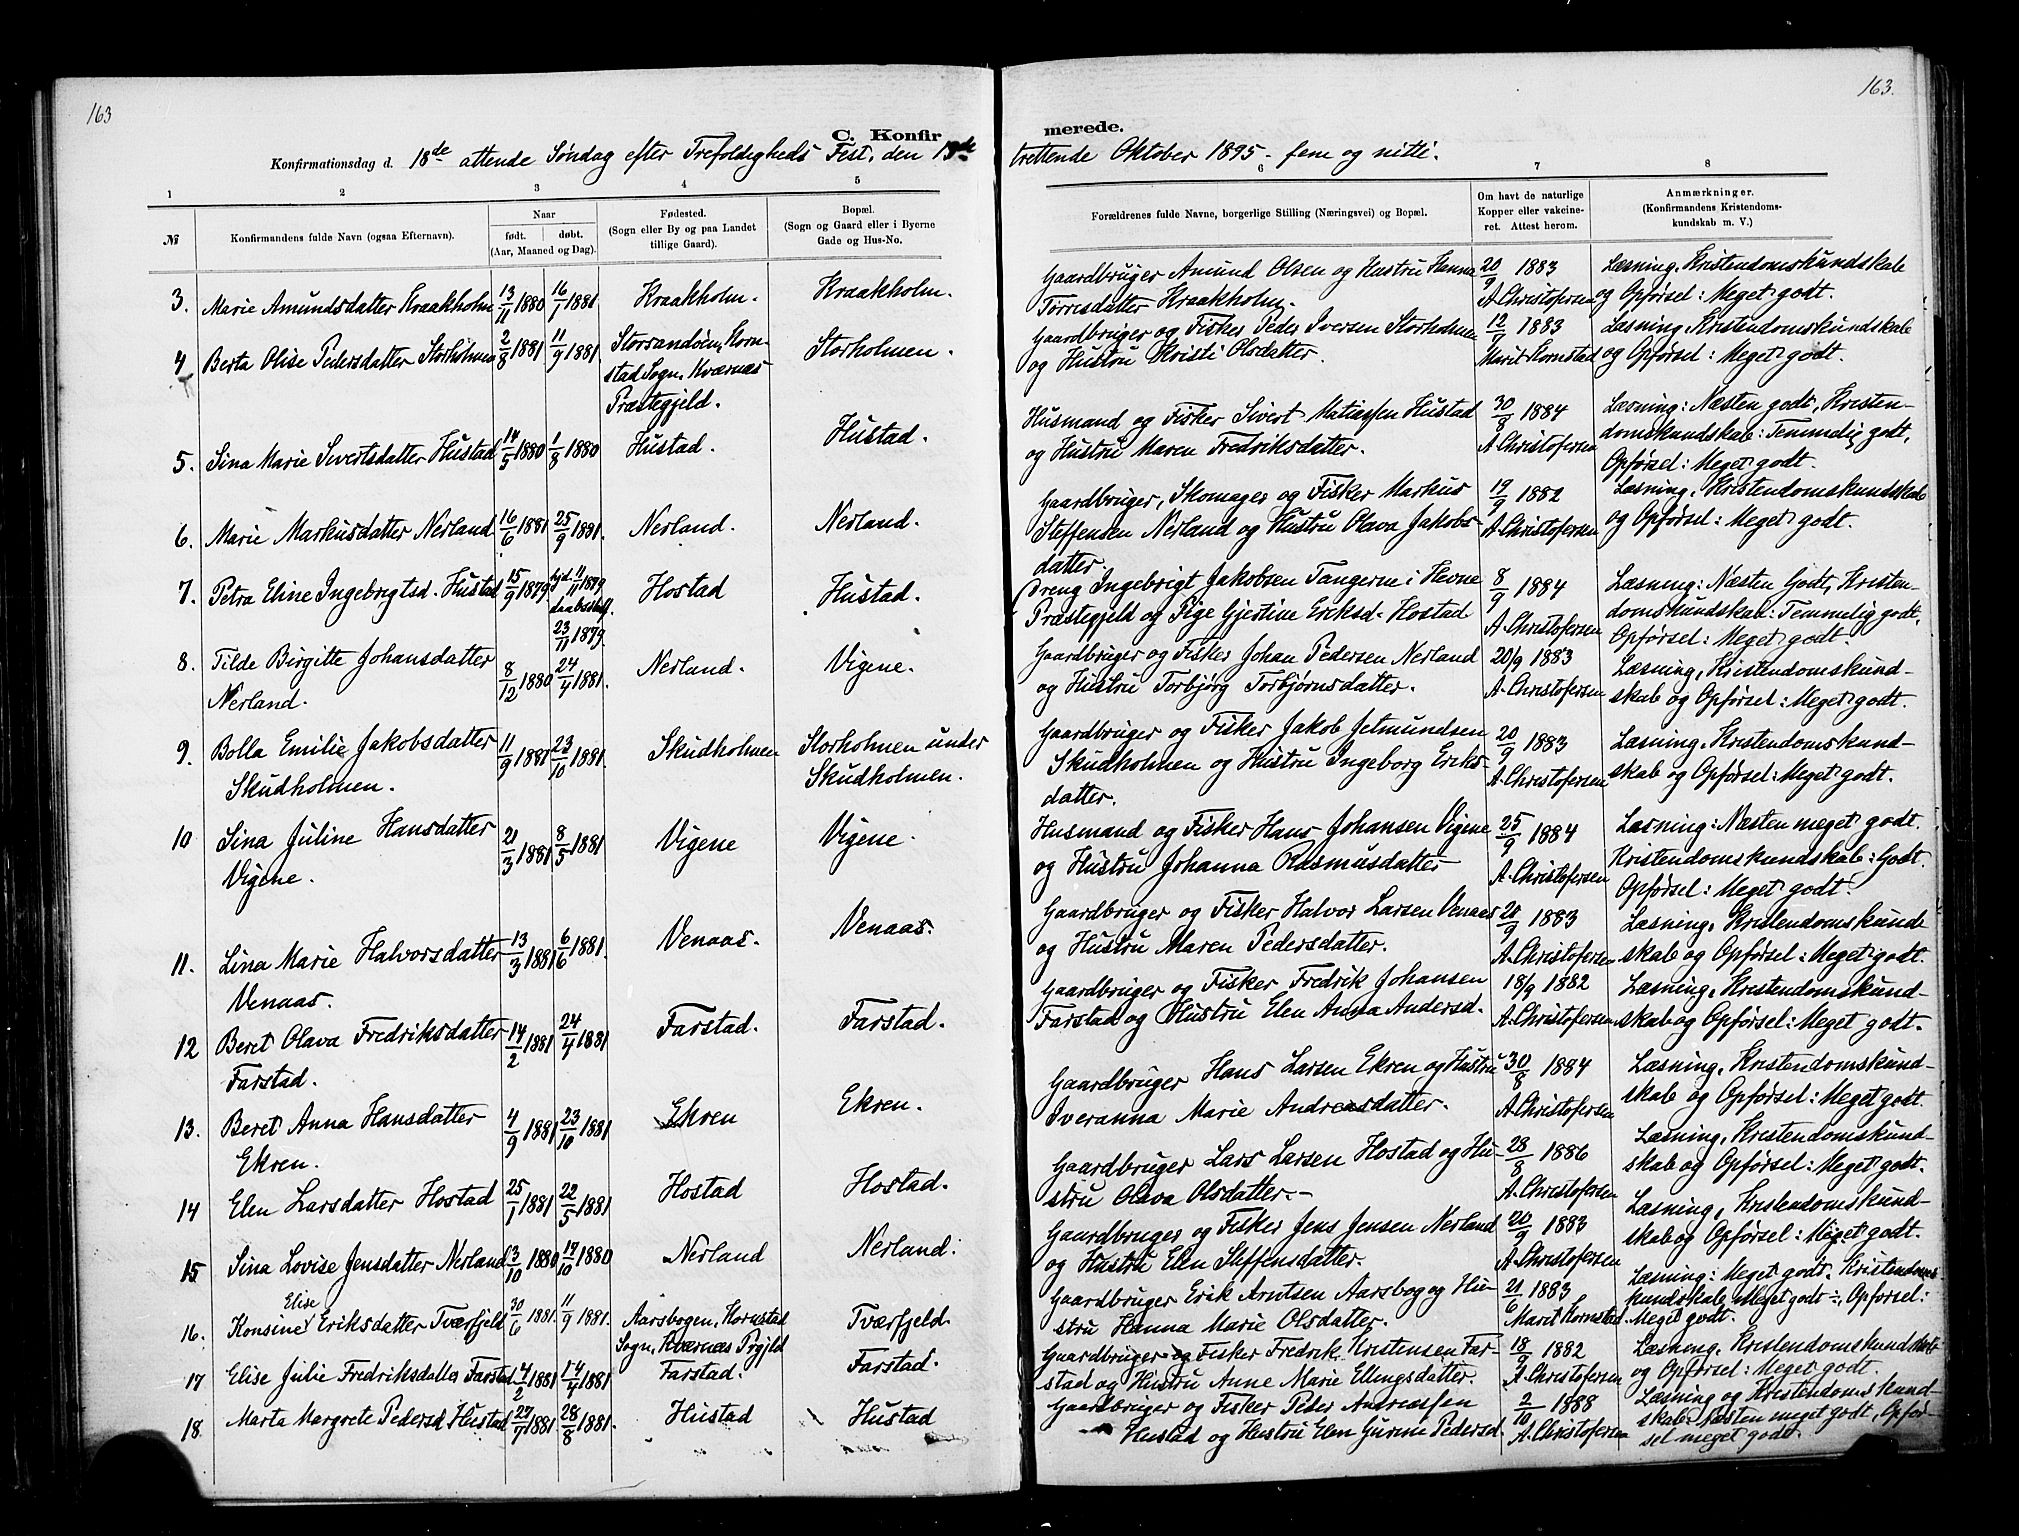 163
163.
C. Konfir
merede.
Konfirmationsdag d. 18de attende Søndag efter Trefoldigheds Fest, den 13de
trettende Oktober 1895 - fem og nitti.
1 2 3 4 5
6 7 8
№
Konfirmandens fulde Navn (ogsaa Efternavn).
Naar
født. døbt.
(Aar, Maaned og Dag).
Fødested.
(Sogn eller By og paa Landet
tillige Gaard).
Bopæl.
(Sogn og Gaard eller i Byerne
Gade og Hus-No.
Forældrenes fulde Navne, borgerlige Stilling (Næringsvei) og Bopæl.
Om havt de naturlige
Kopper eller vakcine-
ret. Attest herom.
Anmærkninger.
(Konfirmandens Kristendoms-
kundskab m. V.)
3. Marie Amundsdatter Kraakholm 13/11 1880 16/1 1881 Kraakholm. Kraakholm.
Gaardbruger Amund Olsen og Hustru Hanna 20/9 1883 Læsning, Kristendomskundskab
Torresdatter Kraakholm. A. Christofersen og Opførsel: Meget godt.
4 Berta Olise Pedersdatter Storholmen 2/8 1881 11/9 1881 Storsandøen, Korn- Storholmen.
stad Sogn, Kværnæs
Præstegjeld.
Gaardbruger og Fisker Peder Iversen Storholmen 12/9 1883 Læsning, Kristendomskundskab
og Hustru Kristi Olsdatter. Marit Kornstad og Opførsel: Meget godt.
5. Sina Marie Sivertsdatter Hustad 14/5 1880 1/8 1880 Hustad. Hustad.
Husmand og Fisker Sivert Matiassen Hustad 30/8 1884 Læsning: Næsten godt, Kristen-
og Hustru Maren Fredriksdatter. A. Christofersen domskundskab: Temmelig godt,
Opførsel: Meget godt.
6. Marie Markusdatter Nerland 16/6 1881 25/9 1881. Nerland. Nerland.
Gaardbruger, Skomager og Fisker Markus 19/9 1882 Læsning, Kristendomskundskab
Steffensen Nerland og Hustru Olava Jakobs- A. Christofersen og Opførsel: Meget godt.
datter.
7. Petra Eline Ingebrigtsd. Hustad 15/9 1879 hjd. 11/11 1879 Hostad Hustad.
daabsstdf.
23/11 1879.
Dreng Ingebrigt Jakobsen Tangerne i Hevne 8/9 1884 Læsning: Næsten Godt, Kristen-
Præstegjeld og Pige Gjertine Eriksd. Hostad A. Christofersen domskundskab: Temmelig godt,
Opførsel: Meget godt.
8. Tilde Birgitte Johansdatter 8/12 1880 24/4 1881. Nerland. Vigene.
Nerland.
Gaardbruger og Fisker Johan Pedersen Nerland 20/9 1883 Læsning, Kristendomskund-
og Hustru Torbjørg Torbjørnsdatter. A. Christofersen skab og Opførsel: Meget godt.
9. Bolla Emilie Jakobsdatter 11/9 1881 23/10 1881. Skudholmen Storholmen under
Skudholmen. Skudholmen.
Gaardbruger og Fisker Jakob Jetmundsen 20/9 1883 Læsning, Kristendomskund-
Skudholmen og Hustru Ingeborg Eriks- A. Christofersen skab og Opførsel: Meget godt.
datter.
10 Sina Juline Hansdatter 21/3 1881 8/5 1881 Vigene Vigene.
Vigene.
Husmand og Fisker Hans Johansen Vigene 25/9 1884 Læsning: Næsten meget godt.
og Hustru Johanna Rasmusdatter A. Christofersen Kristendomskundskab: Godt.
Opførsel: Meget godt.
11. Lina Marie Halvorsdatter 13/3 1881 6/6 1881. Venaas. Venaas.
Venaas.
Gaardbruger og Fisker Halvor Larsen Venaas 20/9 1883 Læsning, Kristendomskund-
og Hustru Maren Pedersdatter. A. Christofersen skab og Opførsel: Meget godt.
12 Beret Olava Fredriksdatter 14/2 1881 24/4 1881 Farstad. Farstad.
Farstad.
Gaardbruger og Fisker Fredrik Johansen 18/9 1882 Læsning, Kristendomskund-
Farstad og Hustru Elen Anna Andersd. A. Christofersen skab og Opførsel: Meget godt.
13. Beret Anna Hansdatter 4/9 1881 23/10 1881 Ekren Ekren.
Ekren.
Gaardbruger Hans Larsen Ekren og Hustru 30/8 1884 Læsning, Kristendomskund-
Iveranna Marie Andreasdatter. A. Christofersen skab og Opførsel: Meget godt.
14 Elen Larsdatter Hostad 25/1 1881 22/5 1881 Hostad Hostad.
Gaardbruger Lars Larsen Hostad og Hu- 28/8 1886 Læsning, Kristendomskund-
stru Olava Olsdatter. A. Christofersen skab og Opførsel: Meget godt.
15 Sina Lovise Jensdatter Nerland 3/10 1880 17/10 1880 Nerland Nerland.
Gaardbruger og Fisker Jens Jensen Nerland 20/9 1883 Læsning, Kristendomskund-
og Hustru Elen Steffensdatter. A. Christofersen skab og Opførsel: Meget godt.
16. Konsine Elise Eriksdatter Tværfjeld 30/6 1881 11/9 1881. Aarsbogen, Kornstad Tværfjeld.
Sogn, Kværnæs Prgjld
Gaardbruger Erik Arntsen Aarsbog og Hu- 21/6 1883 Læsning: Meget godt, Kristendoms
stru Hanna Marie Olsdatter. Marit Kornstad. kundskab Meget godt ÷, Opførsel:
Meget godt.
17 Elise Julie Fredriksdatter Farstad 4/2 1881 14/4 1881 Farstad. Farstad.
Gaardbruger og Fisker Fredrik Kristensen Far- 18/9 1882 Læsning, Kristendomskundskab
stad og Hustru Anne Marie Ellingsdatter. A. Christofersen og Opførsel: Meget godt.
18. Marta Margrete Pedersd. Hustad 27/7 1881 28/8 1881. Hustad Hustad
Gaardbruger og Fisker Peder Andreassen 2/10 1888 Læsning og Kristendomskund-
Hustad og Hustru Elen Gurine Pedersd. A. Christofersen skab: Næsten meget godt, Opfør-
sel meget godt.